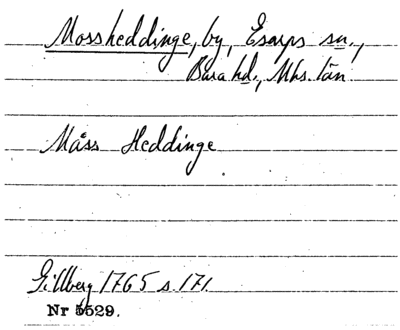 Mossheddinge, by, Esarps sn.,
Bara hd., Mhs. län
Måss Heddinge
Gillberg 1765 s. 171.
Nr 5529.